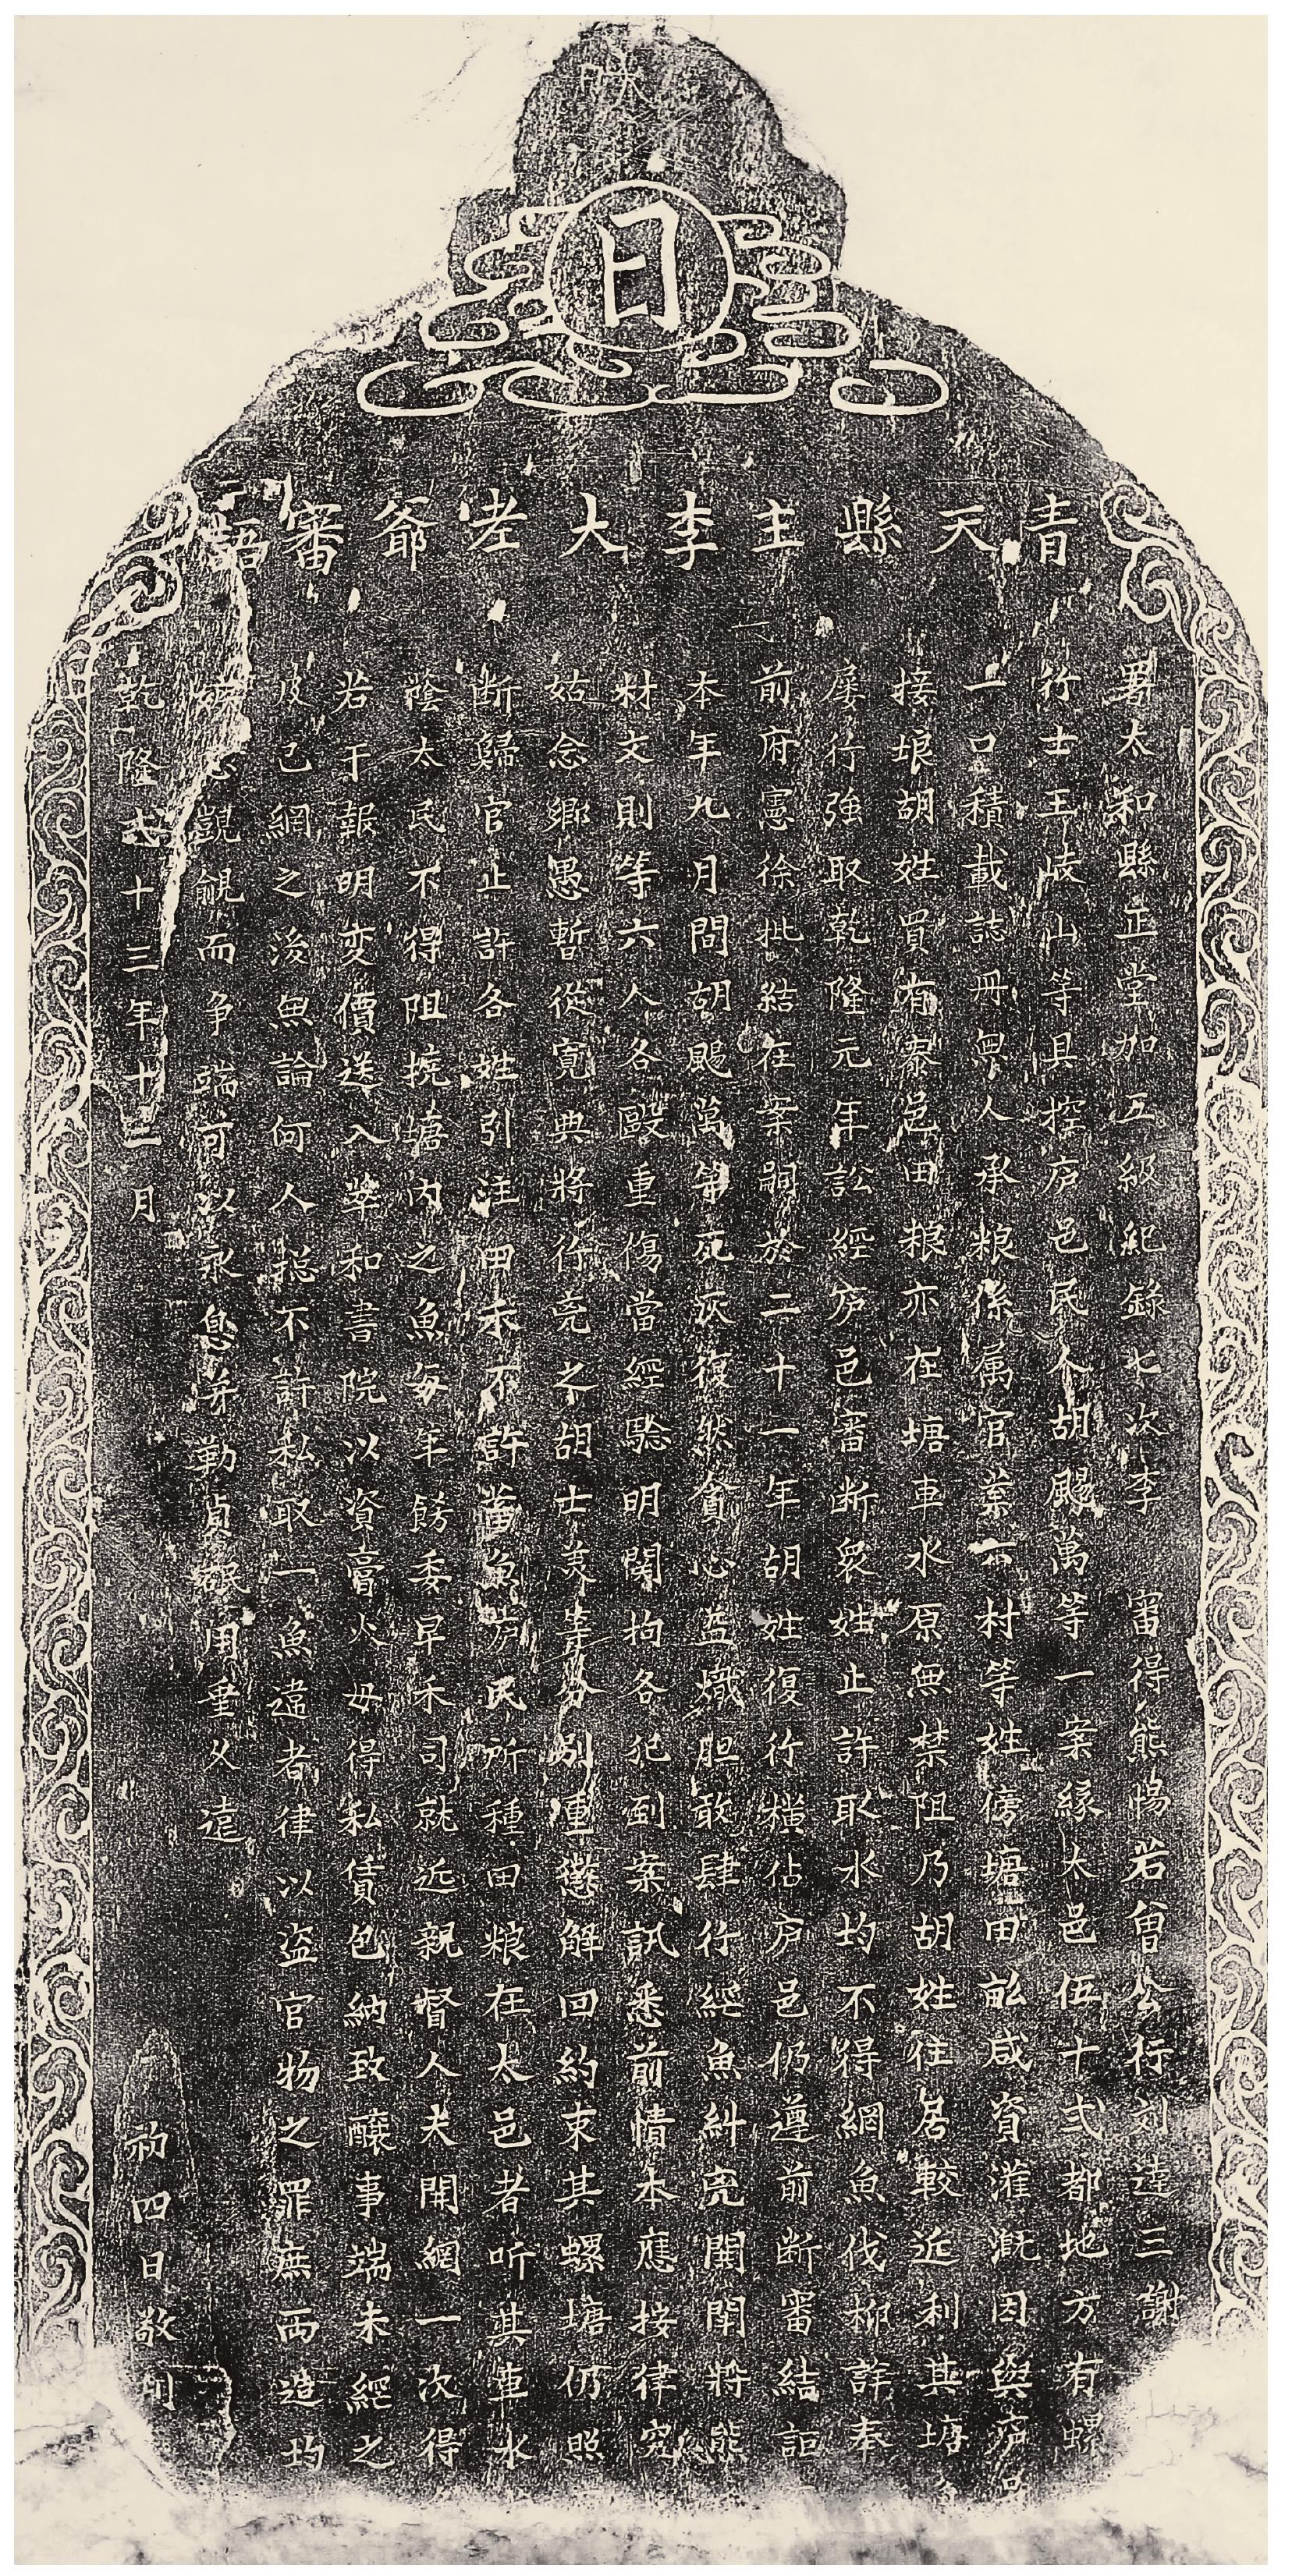 日
青天縣主李大老爺審語
署太和縣正堂加五級紀錄七次李 審得熊惕若曾公行刘達三謝
行士王岐山等具控庐邑民人胡颺萬等一案緣太邑伍十弍都地方有螺
一口積載誌冊人承粮係属官業六村等姓傍塘田畝咸資灌溉因與庐邑
接埌胡姓買有泰邑田粮亦在塘車水原無禁阻乃胡姓往居較近利其塘魚
屡行強取乾隆元年訟經庐邑審断衆姓止許取水均不得網魚伐柳詳奉
前府憲徐批結在案嗣於二十一年胡姓復行横佔庐邑仍遵前断審結詎
本年九月間胡颺萬等死灰復然貪心益熾胆敢肆行經魚糾兇開閘將熊
材文則等六人各毆重傷當經驗明関拘各犯到案訊悉前情本應按律究
姑念鄉愚暫從寬典將行兇之胡士美等分別重懲解回約束其螺塘仍照
断歸官止許各姓引注田禾不許蓄魚庐民所種田粮在太邑者听其車水
蔭太民不得阻撓塘内之魚每年餝委早禾司就近親督人夫開網一次得
若干報明变價送入萃和書院以資膏火毋得私賃包納致釀事端未經之
及已網之後無論何人総不許私取一魚違者律以盗官物之罪庶两造均
心覬覦而争端可以永息并勒貞珉用垂久遠
乾隆十三年十二月 初四日敬刊